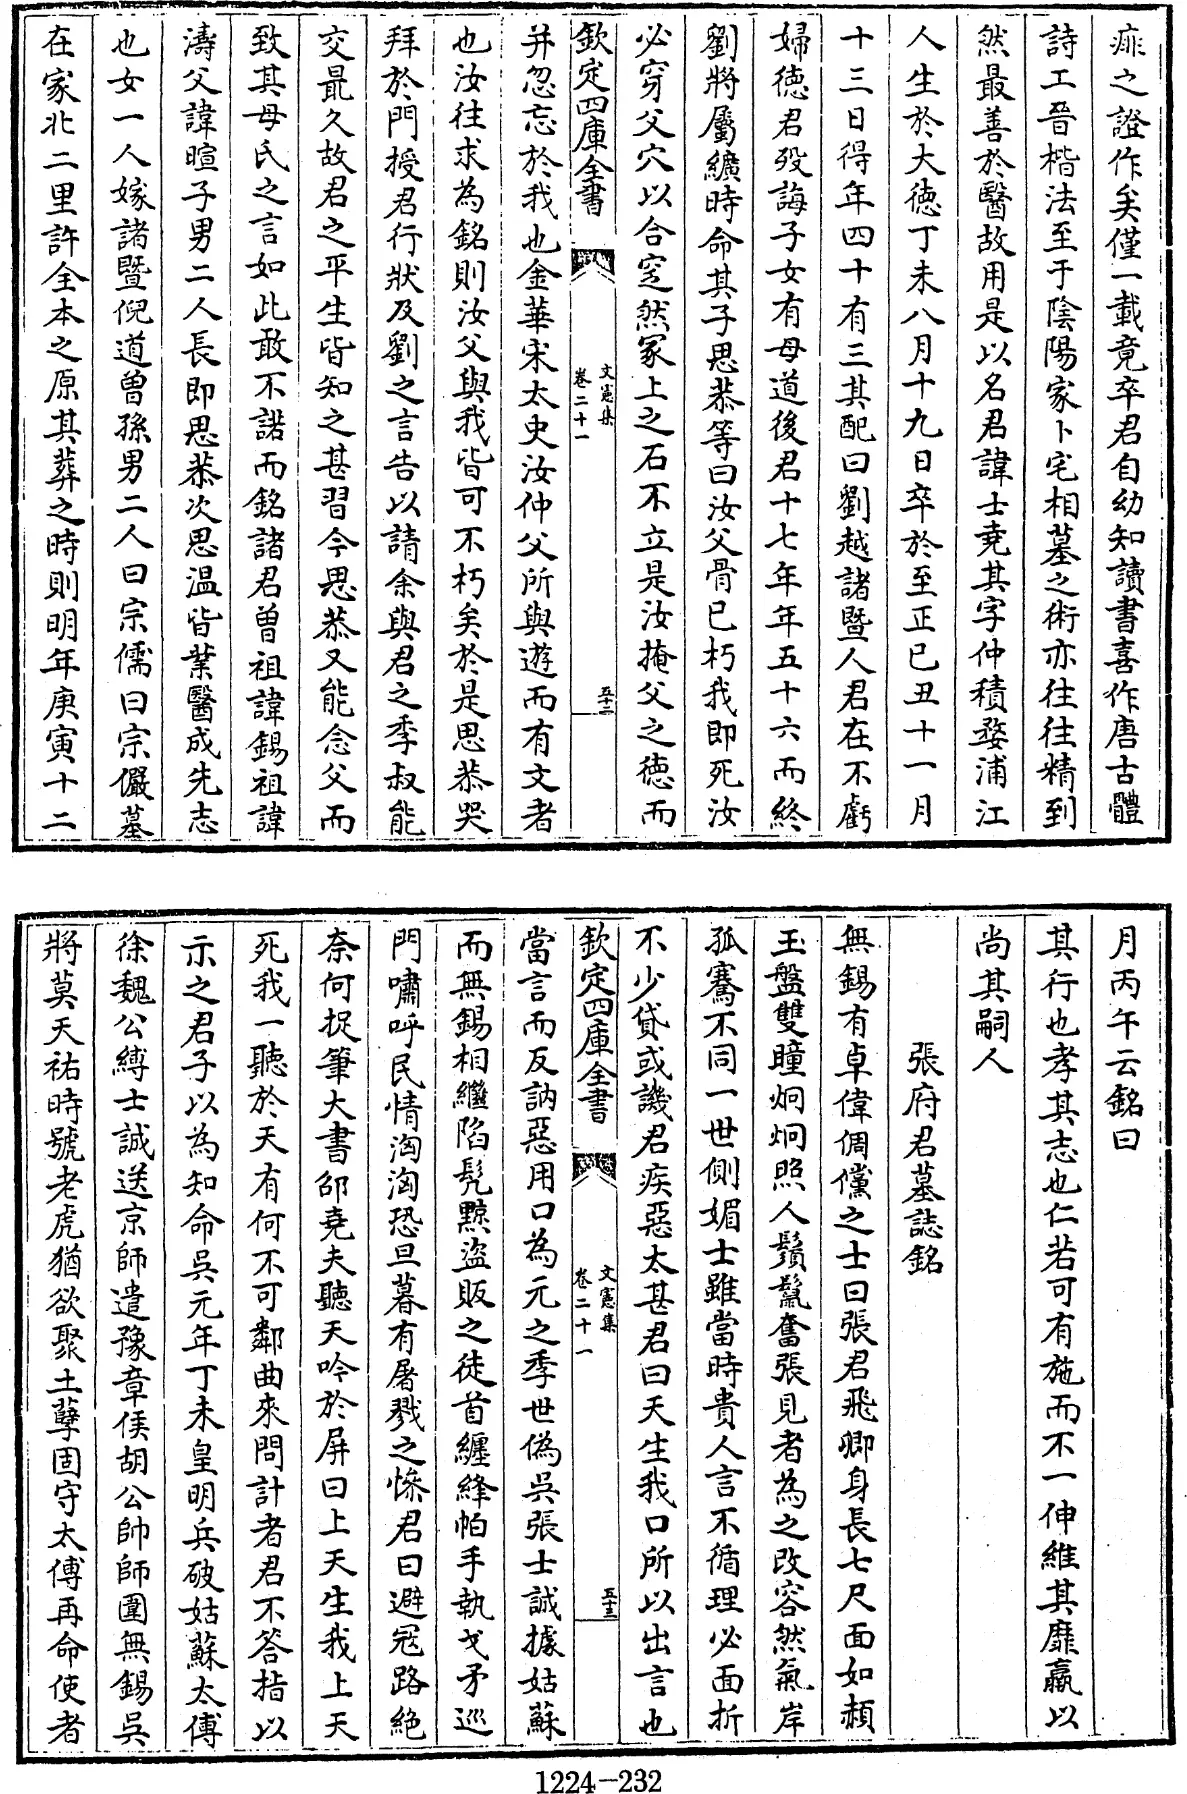 痱之證作矣僅一載竟卒君自幼知讀書喜作唐古體
詩工晉楷法至于陰陽家卜宅相墓之術亦往往精到
然最善於醫故用是以名君諱士堯其字仲積婺浦江
人生於大德丁未八月十九日卒於至正已丑十一月
十三日得年四十有三其配曰劉越諸暨人君在不虧
婦德君歿誨子女有母道後君十七年年五十六而終
劉將屬纊時命其子思恭等曰汝父骨已朽我即死汝
必穿父穴以合窆然冢上之石不立是汝掩父之德而
欽定四庫全書
文憲集
卷二十一
五十二
并忽忘於我也金華宋太史汝仲父所與遊而有文者
也汝往求為銘則汝父與我皆可不朽矣於是思恭哭
拜於門授君行狀及劉之言告以請余與君之季叔能
交最久故君之平生皆知之甚習今思恭又能念父而
致其母氏之言如此敢不諾而銘諸君曾祖諱錫祖諱
濤父諱暄子男二人長即思恭次思温皆業醫成先志
也女一人嫁諸暨倪道曾孫男二人曰宗儒曰宗儼墓
在家北二里許全本之原其葬之時則明年庚寅十二
月丙午云銘曰
其行也孝其志也仁若可有施而不一伸維其靡贏以
尚其嗣人
張府君墓誌銘
無錫有卓偉倜儻之士曰張君飛卿身長七尺面如頳
玉盤雙瞳炯炯照人鬚鬣奮張見者為之改容然氣岸
孤騫不同一世側媚士雖當時貴人言不循理必面折
不少貸或譏君疾惡太甚君曰天生我口所以出言也
欽定四庫全書
文憲集
卷二十一
五十三
當言而反訥惡用口為元之季世偽吳張士誠據姑蘇
而無錫相繼陷髠黥盜販之徒首纏絳帕手執戈矛巡
門嘯呼民情洶洶恐旦暮有屠戮之慘君曰避冦路絶
奈何捉筆大書邵堯夫聽天吟於屏曰上天生我上天
死我一聽於天有何不可鄰曲來問計者君不答指以
示之君子以為知命吳元年丁未皇明兵破姑蘇太傅
徐魏公縛士誠送京師遣豫章侯胡公帥師圍無錫吳
將莫天祐時號老虎猶欲聚土孽固守太傅再命使者
1224-232